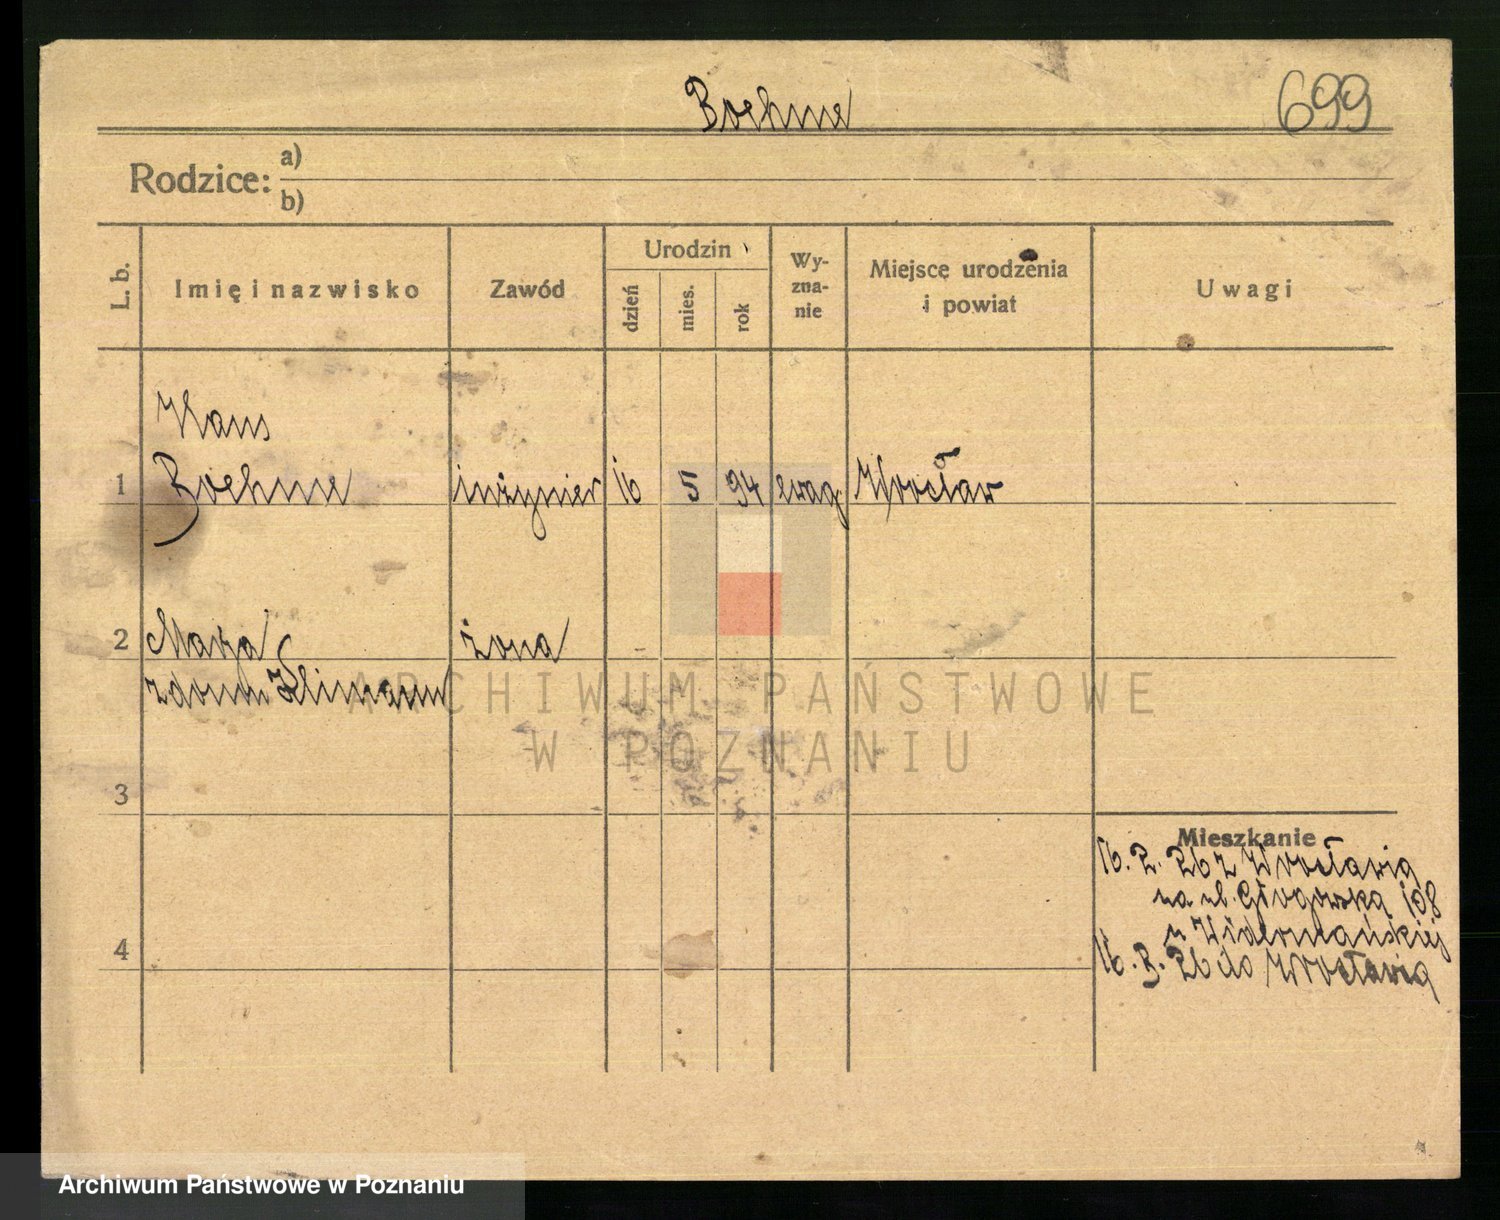 Boehme 699
Rodzice: a)
b)
L. b. Imię i nazwisko Zawód Urodzin dzień mies. rok Wy-zna-nie Miejsce urodzenia i powiat Uwagi
Hans
1 Boehme inżynier 16 5 94 ewag Wrocław
2 Marja żona
z domu Klimann
ARCHIWUM PAŃSTWOWE
W POZNANIU
3
Mieszkanie
16. 2. 26 z Wrocławia
na ul. Głogowska 108
u
4
16. 3. 26 do Wrocławia
Archiwum Państwowe w Poznaniu